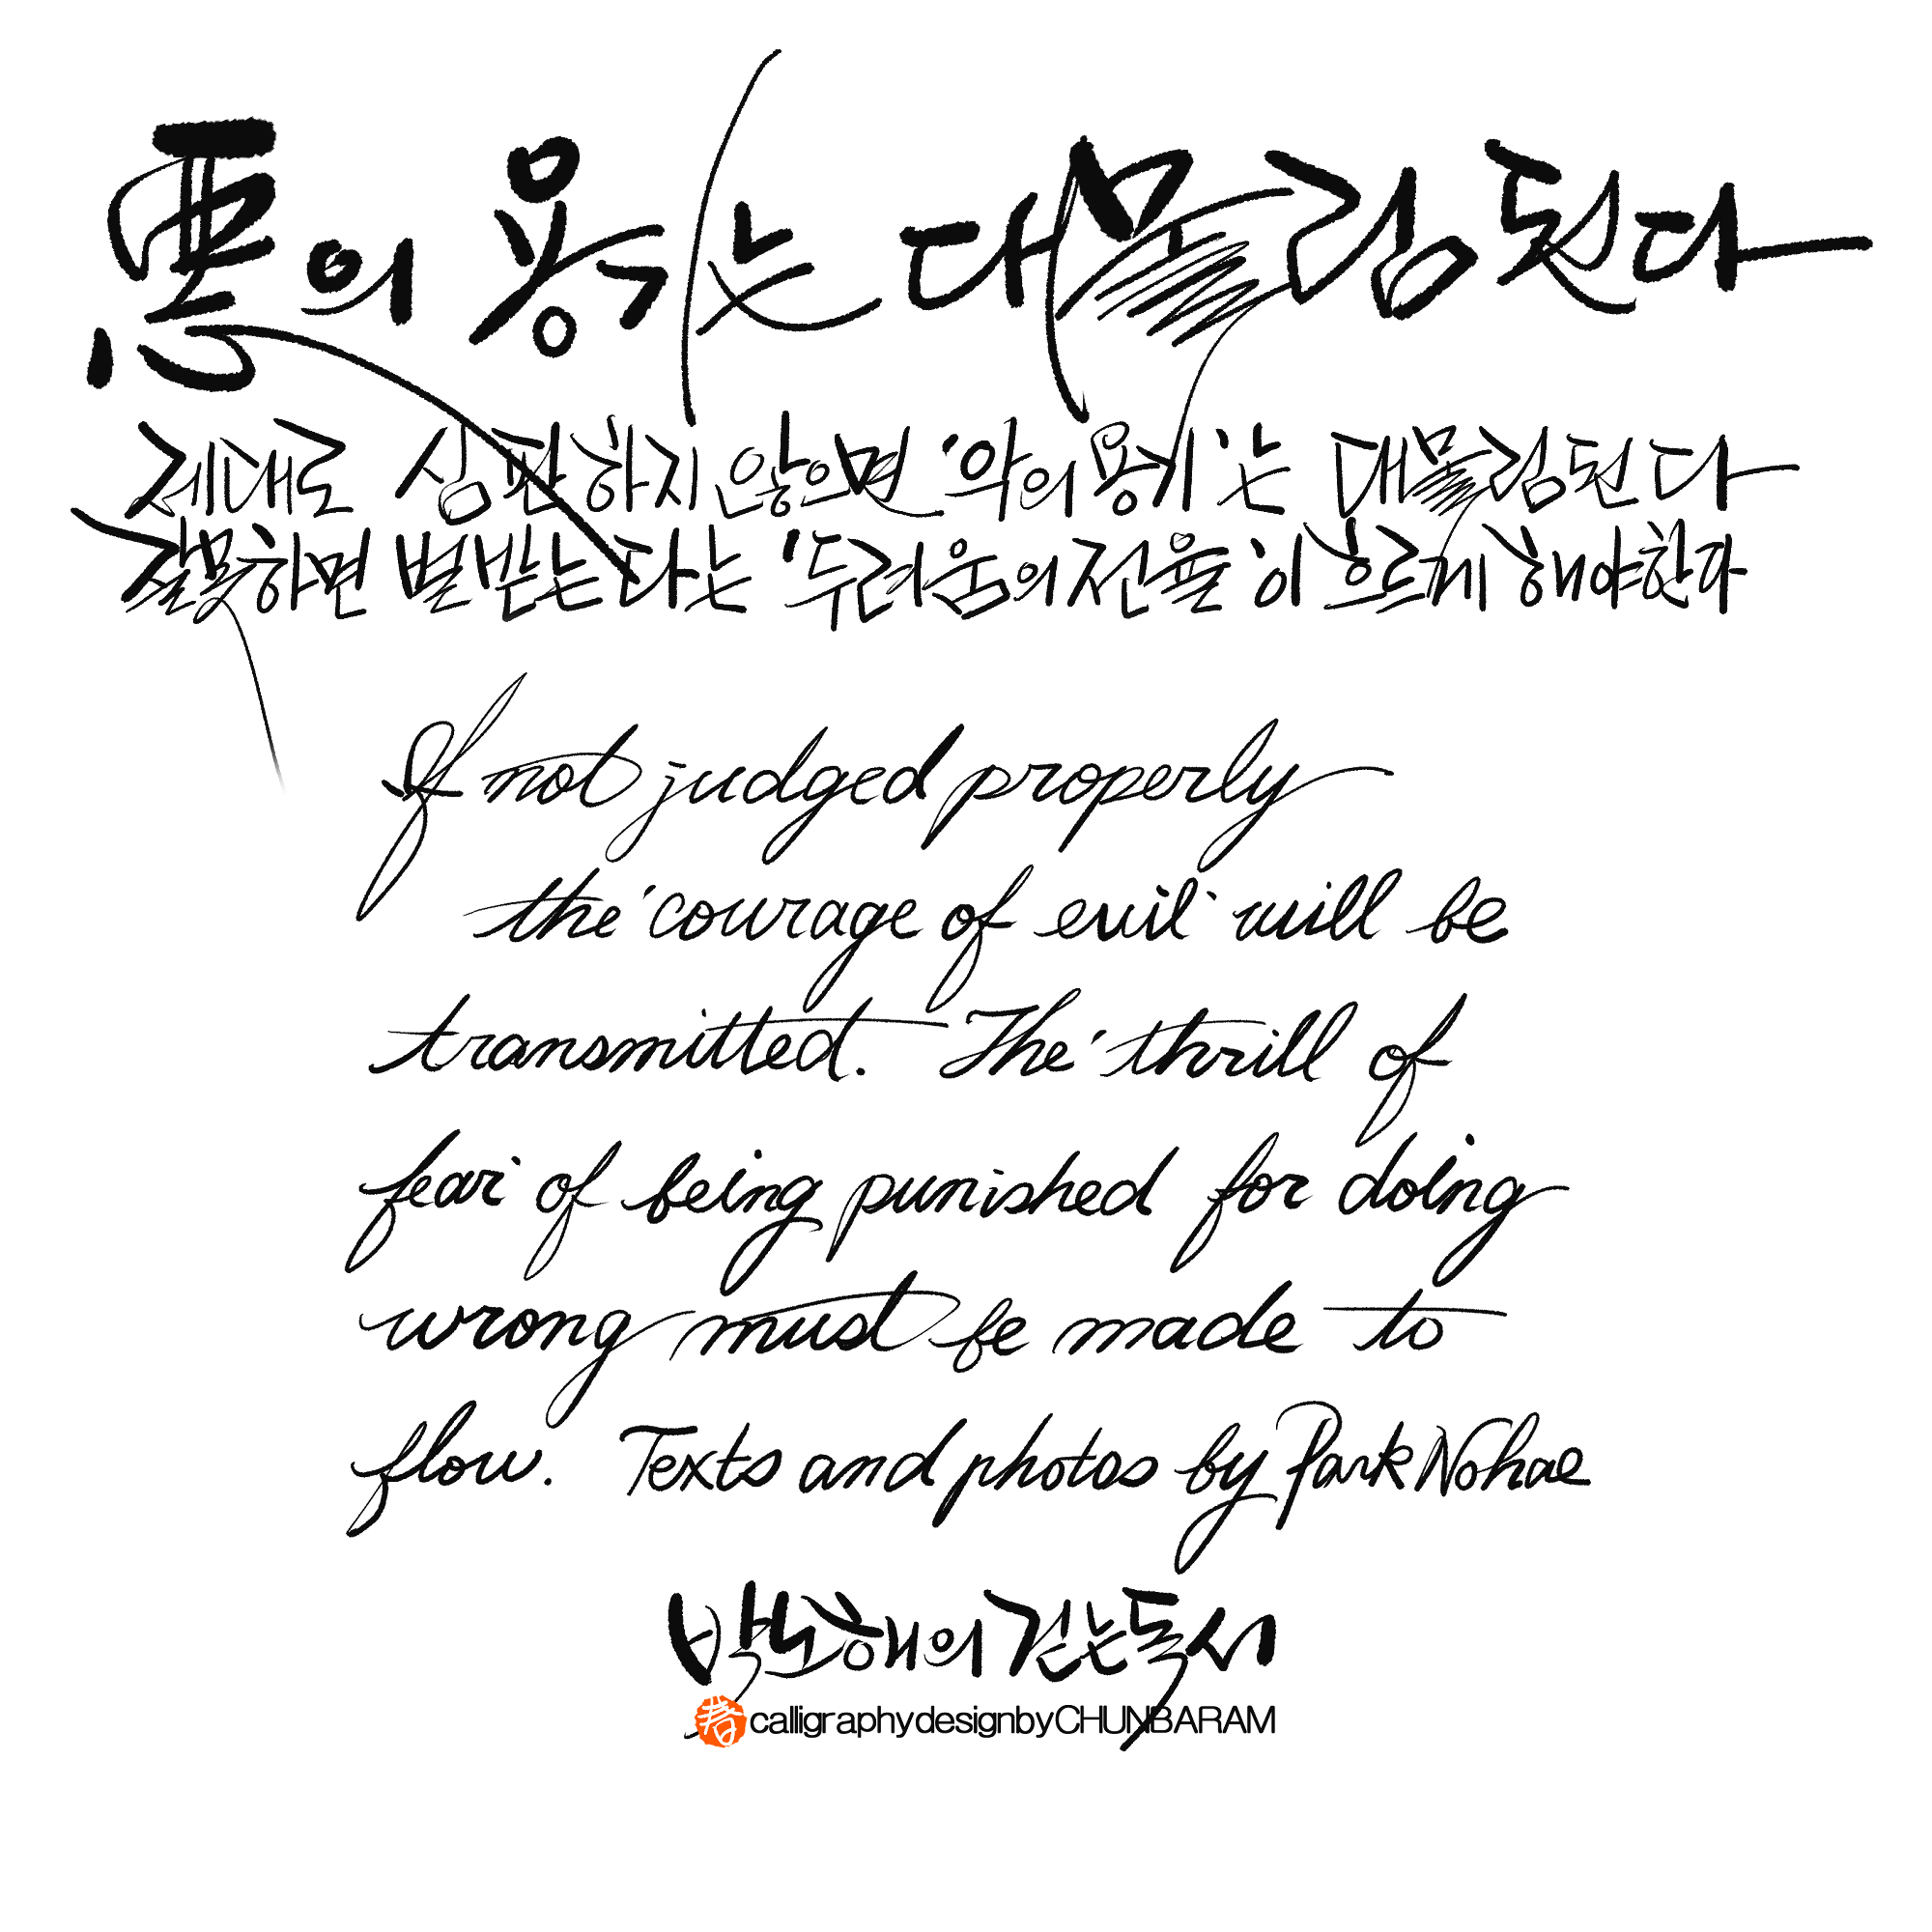 惡의 용기는 대물림 된다
제대로 심판하지 않으면 '악의 용기'는 대물림된다
잘못하면 벌 받는다는 '두려움의 전율'이 흐르게 해야 한다
If not judged properly
the 'courage of evil' will be
transmitted. The 'thrill of
fear' of being punished for doing
wrong must be made to
flow. Texts and photos by Park Nohae
박노해의 걷는 독서
春 calligraphydesignbyCHUNBARAM